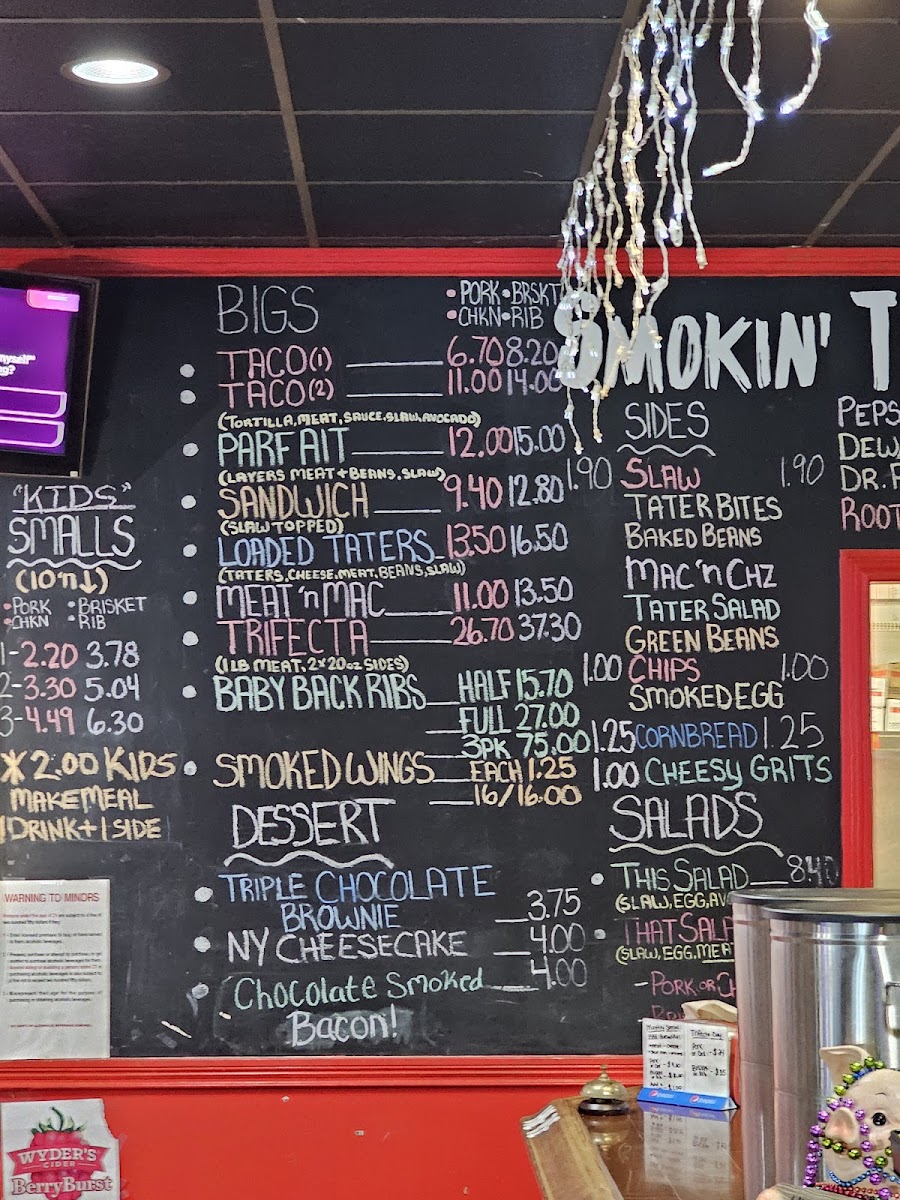 BIGS
•PORK •BRSKT
•CHKN •RIB
TACO(1) 6.70 8.20
TACO(2) 11.00 14.00
(TORTILLA, MEAT, SAUCE, SLAW, AVOCADO)
PARFAIT 12.00 15.00
(LAYERS MEAT + BEANS, SLAW)
SANDWICH 9.40 12.80
(SLAW TOPPED)
LOADED TATERS 13.50 16.50
(TATERS, CHEESE, MEAT, BEANS, SLAW)
MEAT 'n MAC 11.00 13.50
TRIFECTA 26.70 37.30
(1 LB MEAT, 2x20oz SIDES)
BABY BACK RIBS HALF 15.70
FULL 27.00
3PK 75.00
SMOKED WINGS EACH 1.25
16/16.00
DESSERT
TRIPLE CHOCOLATE
BROWNIE 3.75
NY CHEESECAKE 4.00
Chocolate Smoked 4.00
Bacon!
"KIDS"
SMALLS
(10 'n ↓)
•PORK •BRISKET
•CHKN •RIB
1-2.20 3.78
2-3.30 5.04
3-4.49 6.30
* 2.00 KIDS
MAKE MEAL
1 DRINK + 1 SIDE
SMOKIN' T
SIDES
1.90 SLAW 1.90
TATER BITES
BAKED BEANS
MAC 'n CHZ
TATER SALAD
GREEN BEANS
1.00 CHIPS 1.00
SMOKED EGG
1.25 CORNBREAD 1.25
1.00 CHEESY GRITS
SALADS
THIS SALAD 8.40
(SLAW, EGG, AV
THAT SALA
(SLAW, EGG, MEAT
-PORK OR CH
PEPS
DEW,
DR. P
ROOT
myself"
g?
WARNING TO MINORS
WYDER'S
CIDER
BerryBurst
pepsi